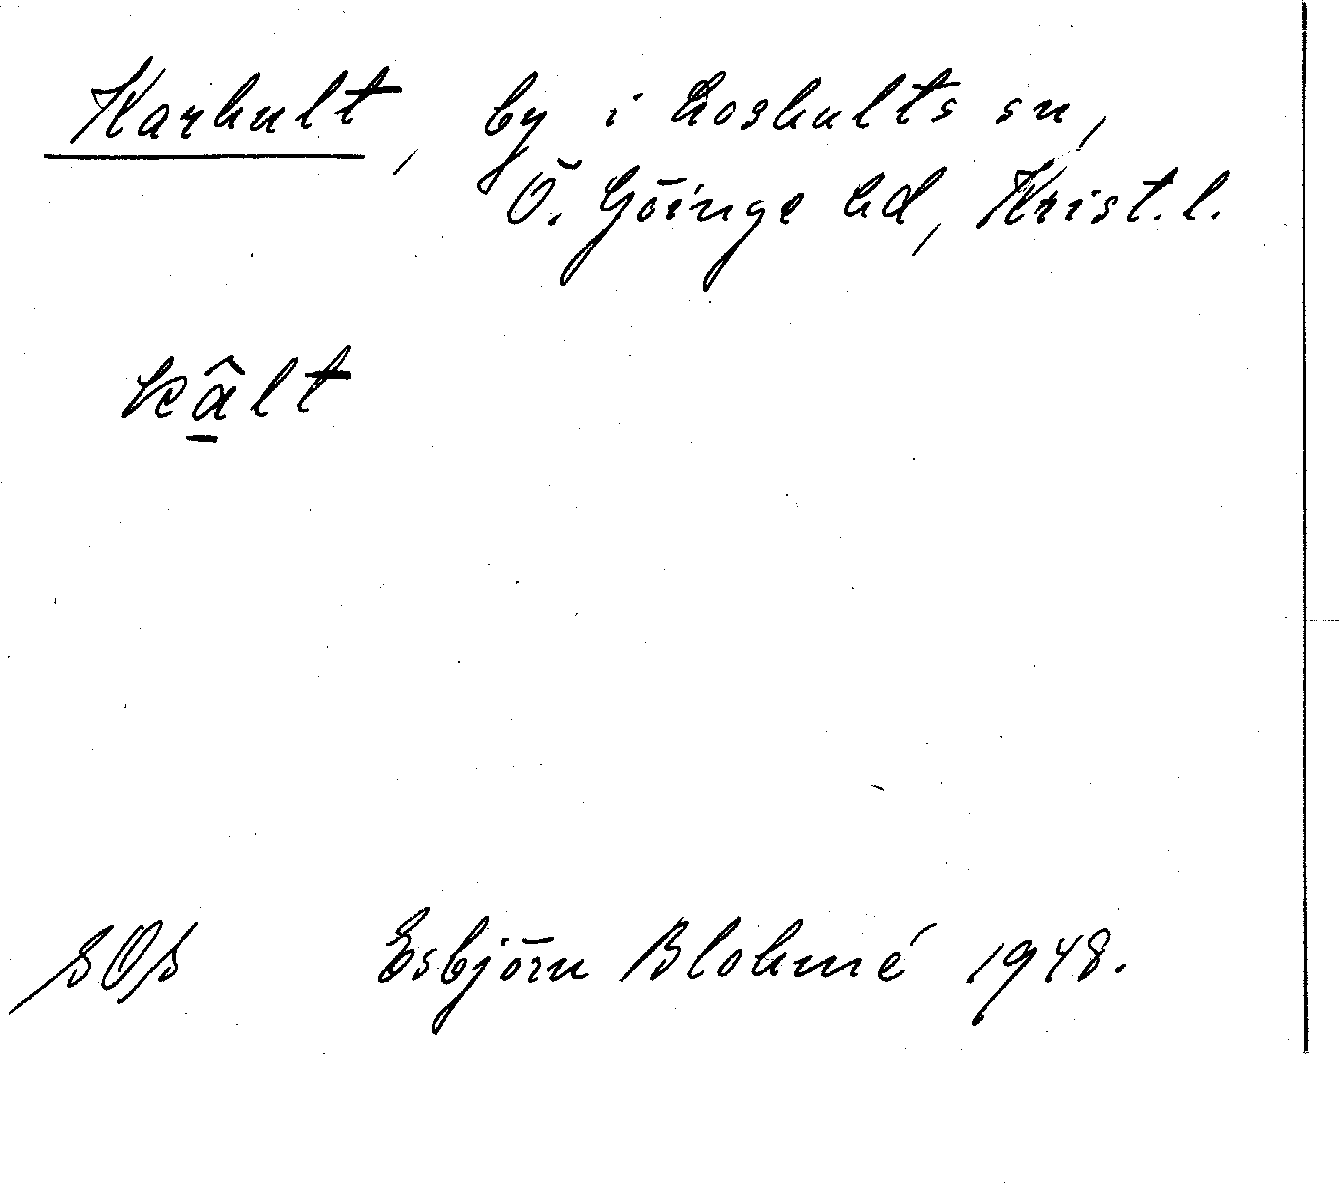 Karhult, by i Loshults sn,
Ö. Göinge hd, Krist. l.
kâ̱lt
SOS Esbjörn Blohmé 1948.